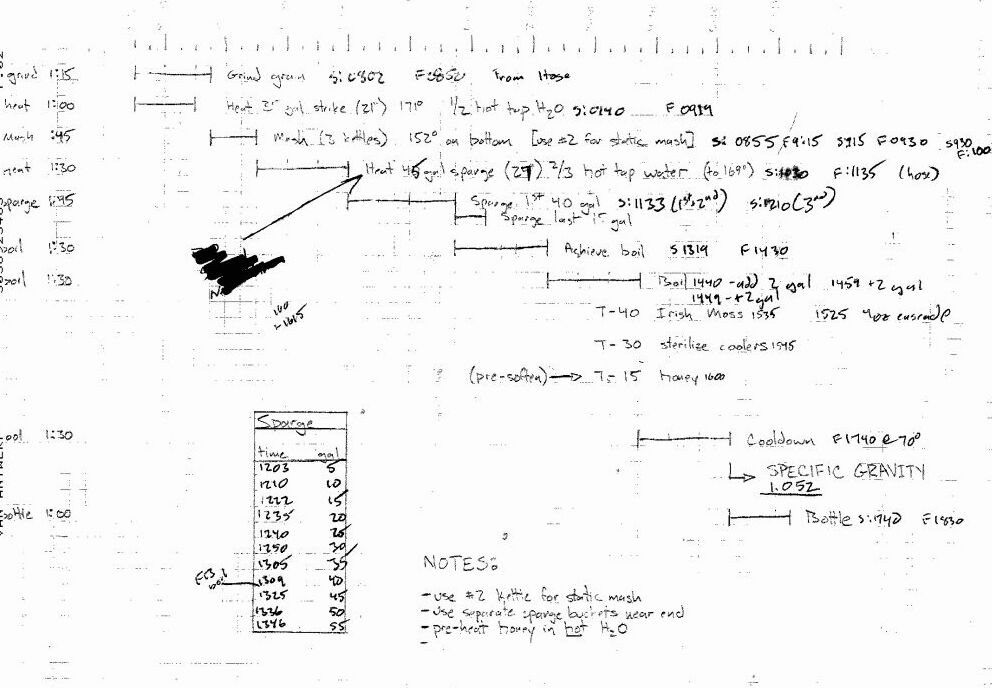 grind 1:15 Grind grain S:0802 F0852 From Hose
heat 1:00 Heat gal strike (21") 171° 1/2 hot tap H2O S:0740 F0919
Mash :45 Mash (3 kettles) 152° on bottom [use #2 for static mash] S: 0855 F9:15 S915 F0930 S930
F:1100
heat 1:30 Heat 45 gal sparge (29") 2/3 hot tap water (to 169°) F:1135 (hose)
sparge 1:45 Sparge 1st 40 gal S:1133 (1st, 2nd) S:1210 (3rd)
Sparge last 15 gal
boil 1:30 Achieve boil S1319 F1430
boil 1:30 Boil 1440 -add 2 gal 1459 +2 gal
1449 - +2 gal
T-40 Irish Moss 1535 1525 4oz cascade
T-30 sterilize coolers 1545
(pre-soften) → T-15 honey 1600
Sparge
time gal
1203 5
1210 10
1222 15
1235 20
1240 25
1250 30
1305 35
1309 40
1325 45
1336 50
1346 55
cool 1:30 Cooldown F1740 @ 70°
SPECIFIC GRAVITY
1.052
bottle 1:00 Bottle S:1740 F1830
NOTES:
-use #2 kettle for static mash
-use separate sparge buckets near end
-pre-heat honey in hot H2O
-